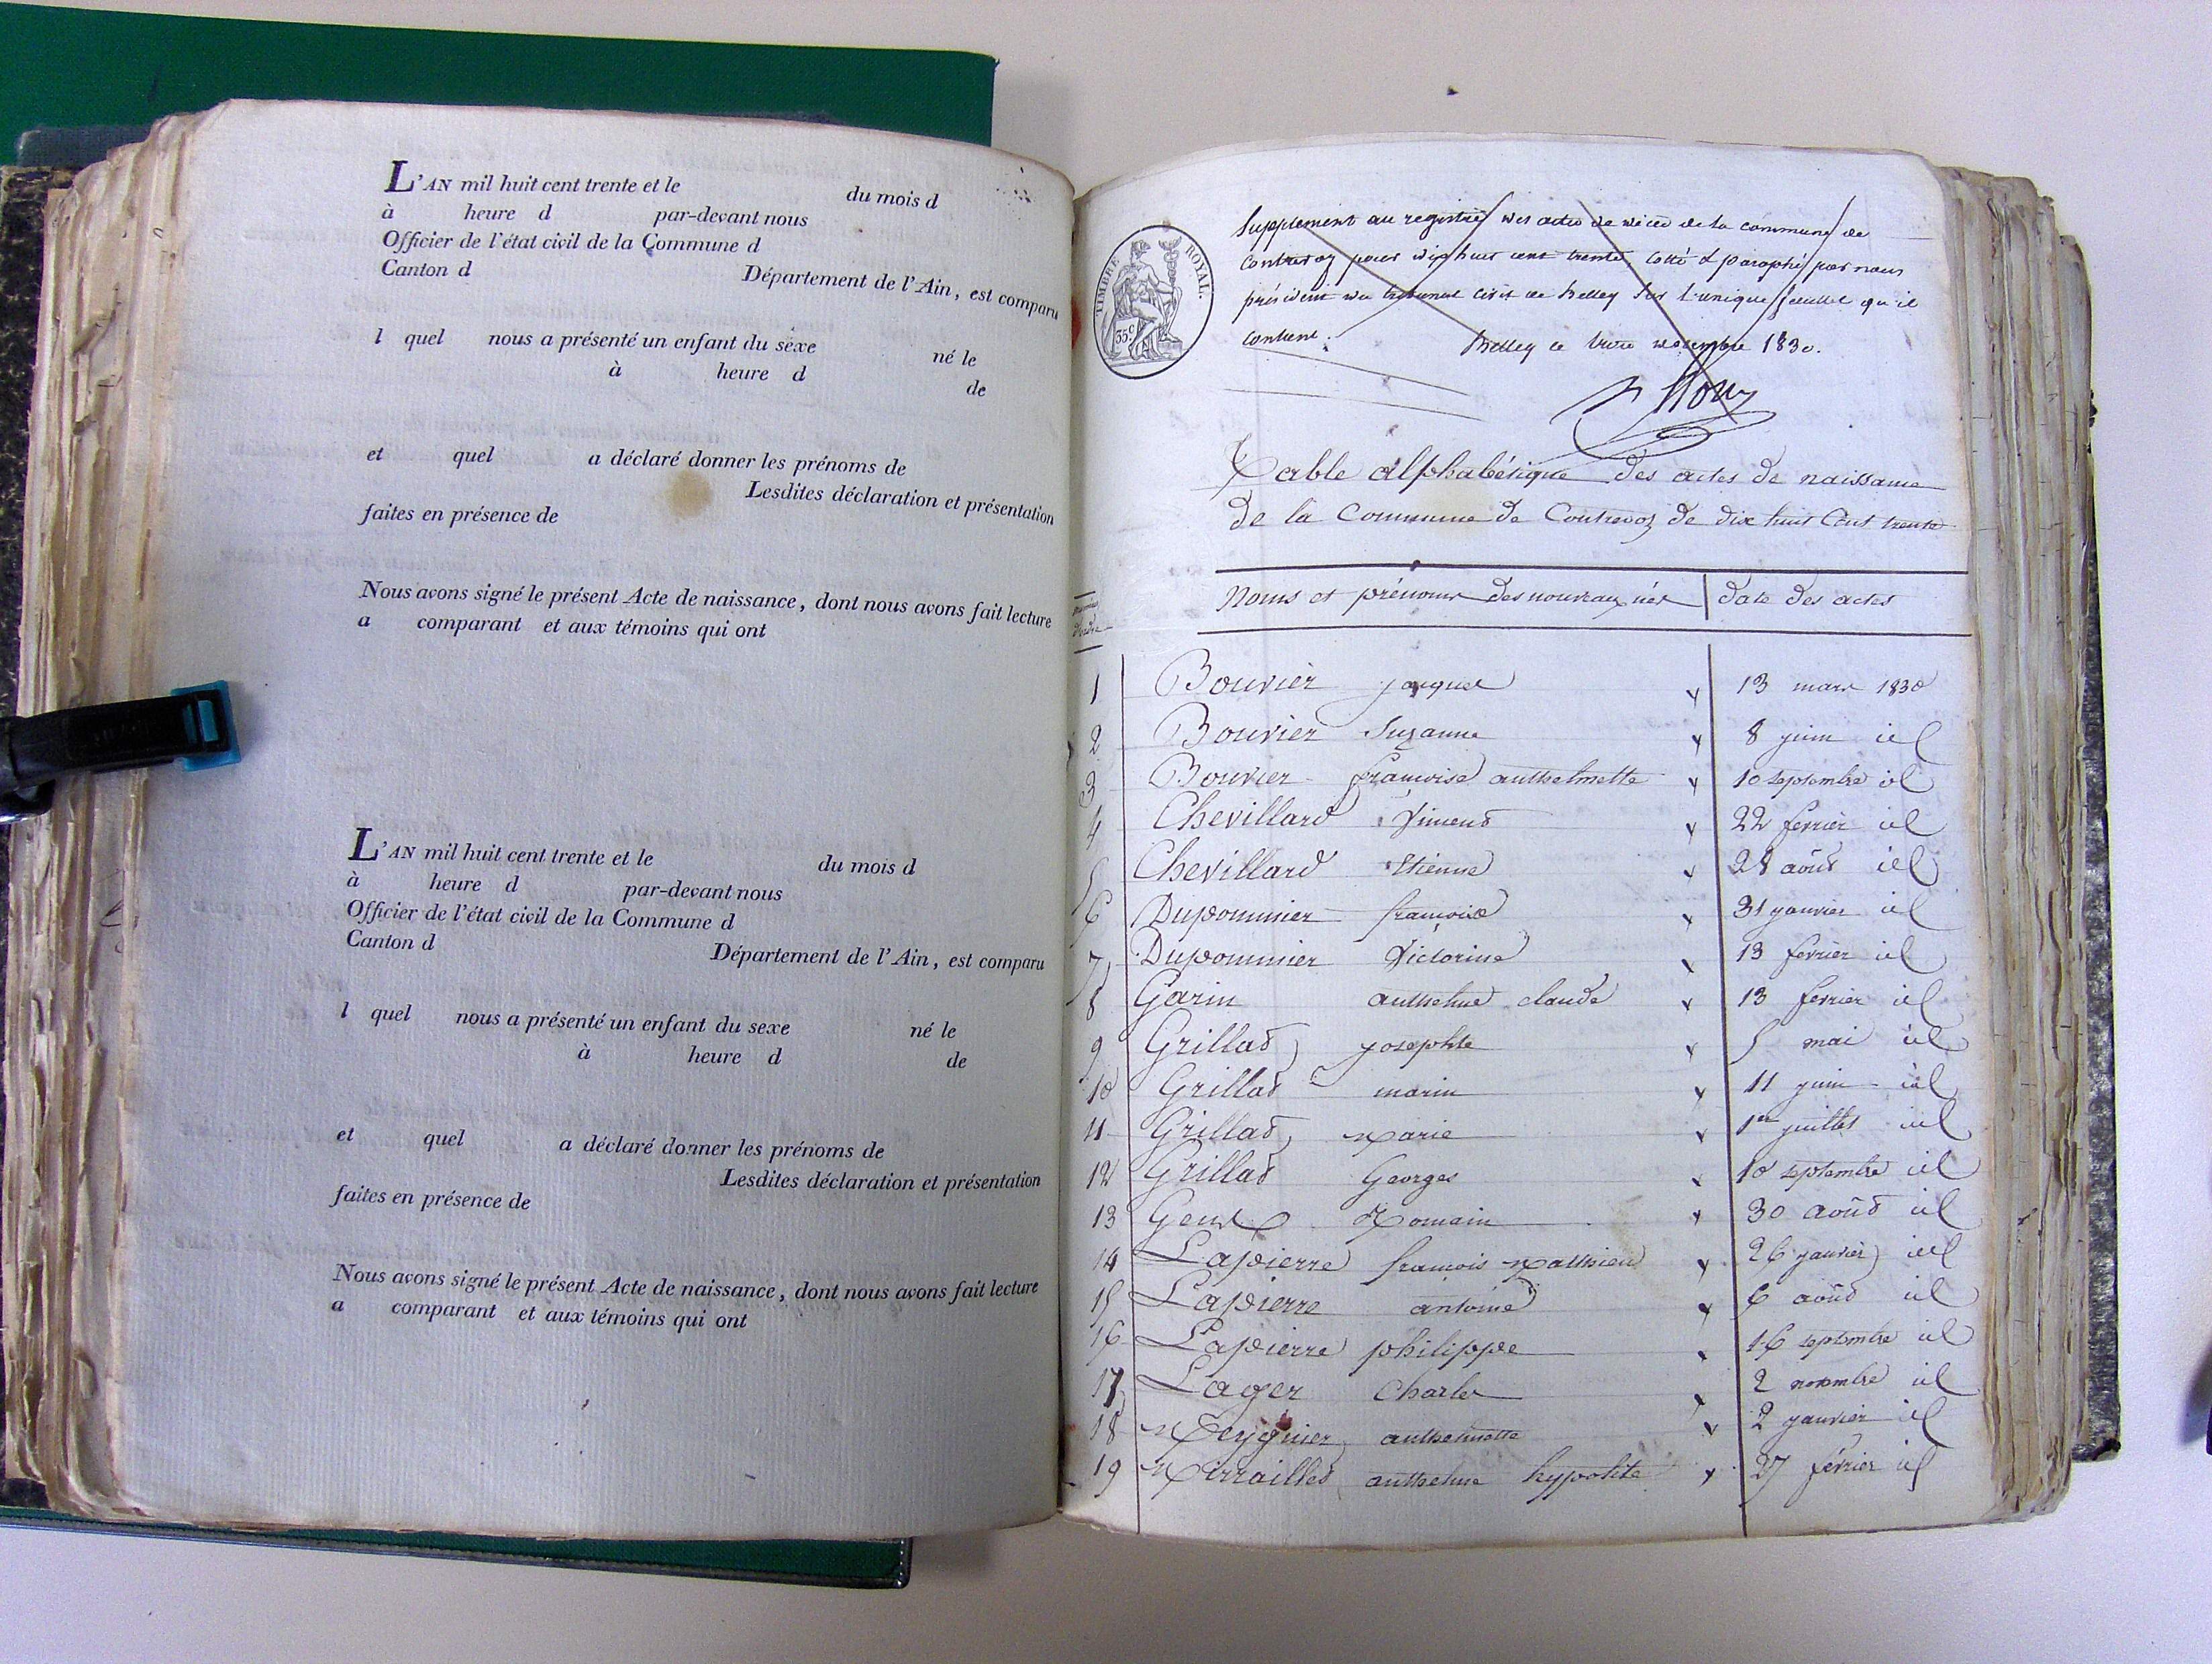 L'AN mil huit cent trente et le du mois d
à heure d par-devant nous
Officier de l'état civil de la Commune d
Canton d Département de l'Ain, est comparu
l quel nous a présenté un enfant du sexe né le
à heure d de
et quel a déclaré donner les prénoms de
Lesdites déclaration et présentation
faites en présence de
Nous avons signé le présent Acte de naissance, dont nous avons fait lecture
a comparant et aux témoins qui ont
L'AN mil huit cent trente et le du mois d
à heure d par-devant nous
Officier de l'état civil de la Commune d
Canton d Département de l'Ain, est comparu
l quel nous a présenté un enfant du sexe né le
à heure d de
et quel a déclaré donner les prénoms de
Lesdites déclaration et présentation
faites en présence de
Nous avons signé le présent Acte de naissance, dont nous avons fait lecture
a comparant et aux témoins qui ont
TIMBRE ROYAL.
35c
Supplement au registre des actes de décès de la commune de
contrevoz pour dix huit cent trente, cotté & paraphé par nous
président du tribunal civil de belley sur l'unique feuillet qu'il
contient. Belley ce treize décembre 1830.
Table alphabétique des actes de naissance
de la Commune de Contrevoz de dix huit Cent trente
numéros d'ordre
Noms et prénoms des nouveaux nés date des actes
1 Bouvier jacques 13 mars 1830
2 Bouvier Suzanne 8 juin id
3 Bouvier françoise anthelmette 10 septembre id
4 Chevillard Vincent 22 février id
5 Chevillard Etienne 28 août id
6 Dupommier françoise 31 janvier id
7 Dupommier Victorine 13 février id
8 Garin anthelme claude 13 février id
9 Grillat josephte 5 mai id
10 Grillat marin 11 juin id
11 Grillat Marie 1er juillet id
12 Grillat Georges 10 septembre id
13 Romain 30 août id
14 Lapierre françois Mathieu 26 janvier id
15 Lapierre antoine 6 août id
16 Lapierre philippe 16 septembre id
17 Lager Charles 2 novembre id
18 Meygnier anthelmette 2 janvier id
19 anthelme hypolite 27 février id